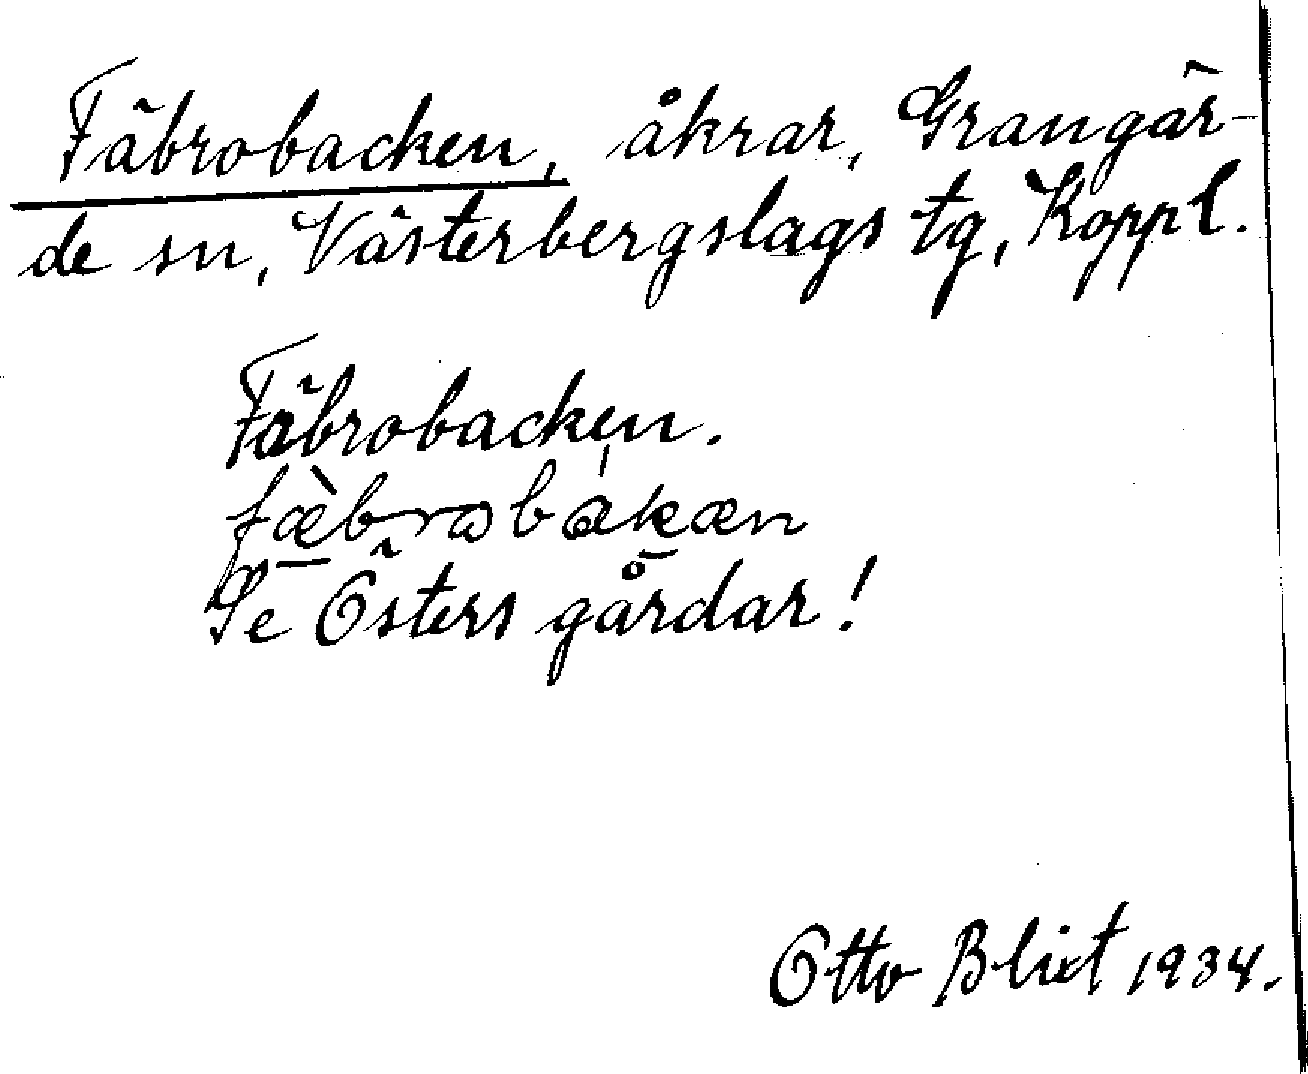 Fäbrobacken, åkrar, Grangär-
de sn, Västerbergslags tg, Koppl.
Fäbrobacken.
fæ̀brωbakæn
Se Östers gårdar!
Otto Blixt 1934.